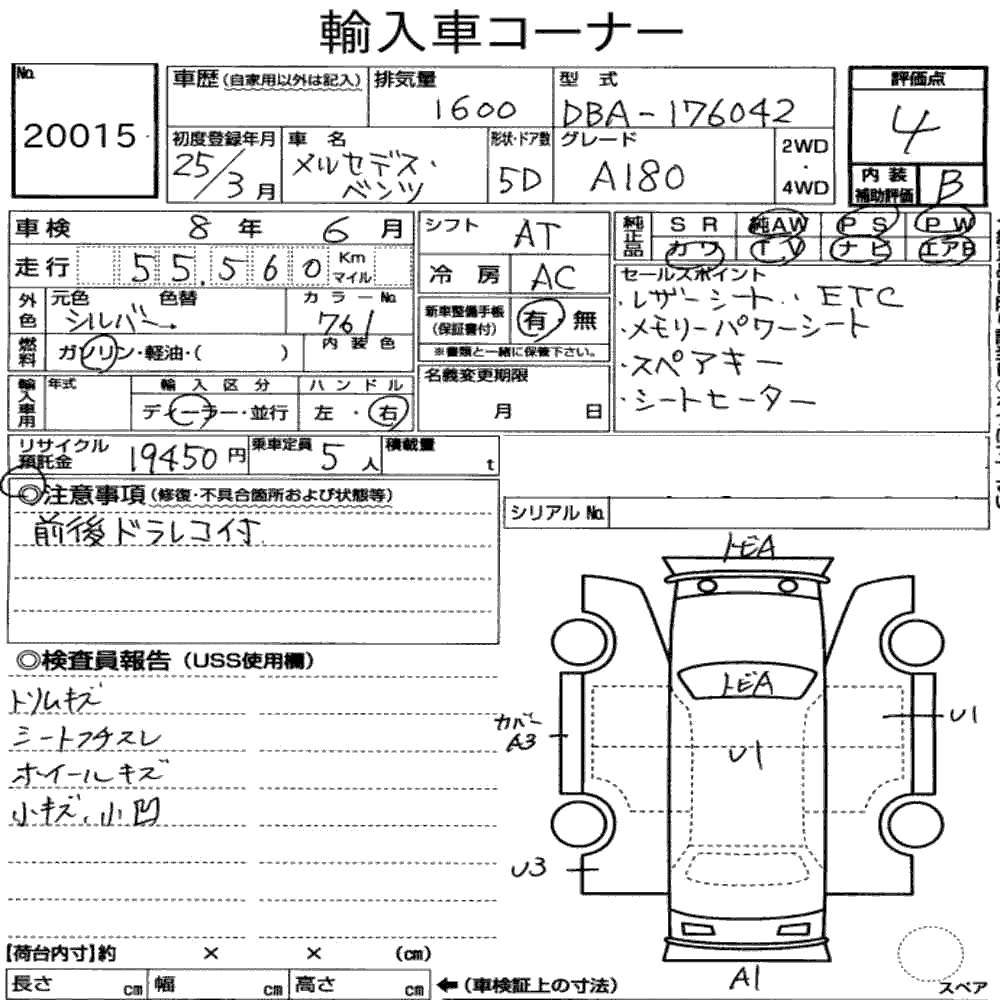 輸入車コーナー
No.
20015
車歴 (自家用以外は記入)
排気量
1600
型 式
DBA-176042
評価点
4
内装補助評価
B
初度登録年月
25/3月
車 名
メルセデス・ベンツ
形状・ドア数
5D
グレード
A180
2WD
・
4WD
車検 8年 6月
走行 55,560 Km マイル
シフト AT
冷房 AC
純正品
SR 純AW PS PW
カワ T.V ナビ エアB
セールスポイント
・レザーシート・・ETC
・メモリーパワーシート
・スペアキー
・シートヒーター
外色
元色 色替
シルバー→
カラーNo.
761
内装色
燃料
ガソリン・軽油・( )
新車整備手帳
(保証書付)
有 無
※書類と一緒に保管下さい。
名義変更期限
月 日
輸入車用
年式
輸入区分
ディーラー・並行
ハンドル
左・右
リサイクル預託金 19450円
乗車定員 5人
積載量 t
◎注意事項 (修復・不具合箇所および状態等)
前後ドラレコ付
シリアルNo.
◎検査員報告 (USS使用欄)
トリムキズ
シートフチスレ
ホイールキズ
小キズ、小凹
トビA
トビA
カバーA3
U1
U1
U3
A1
スペア
【荷台内寸】約 × × (cm)
長さ cm 幅 cm 高さ cm ←(車検証上の寸法)